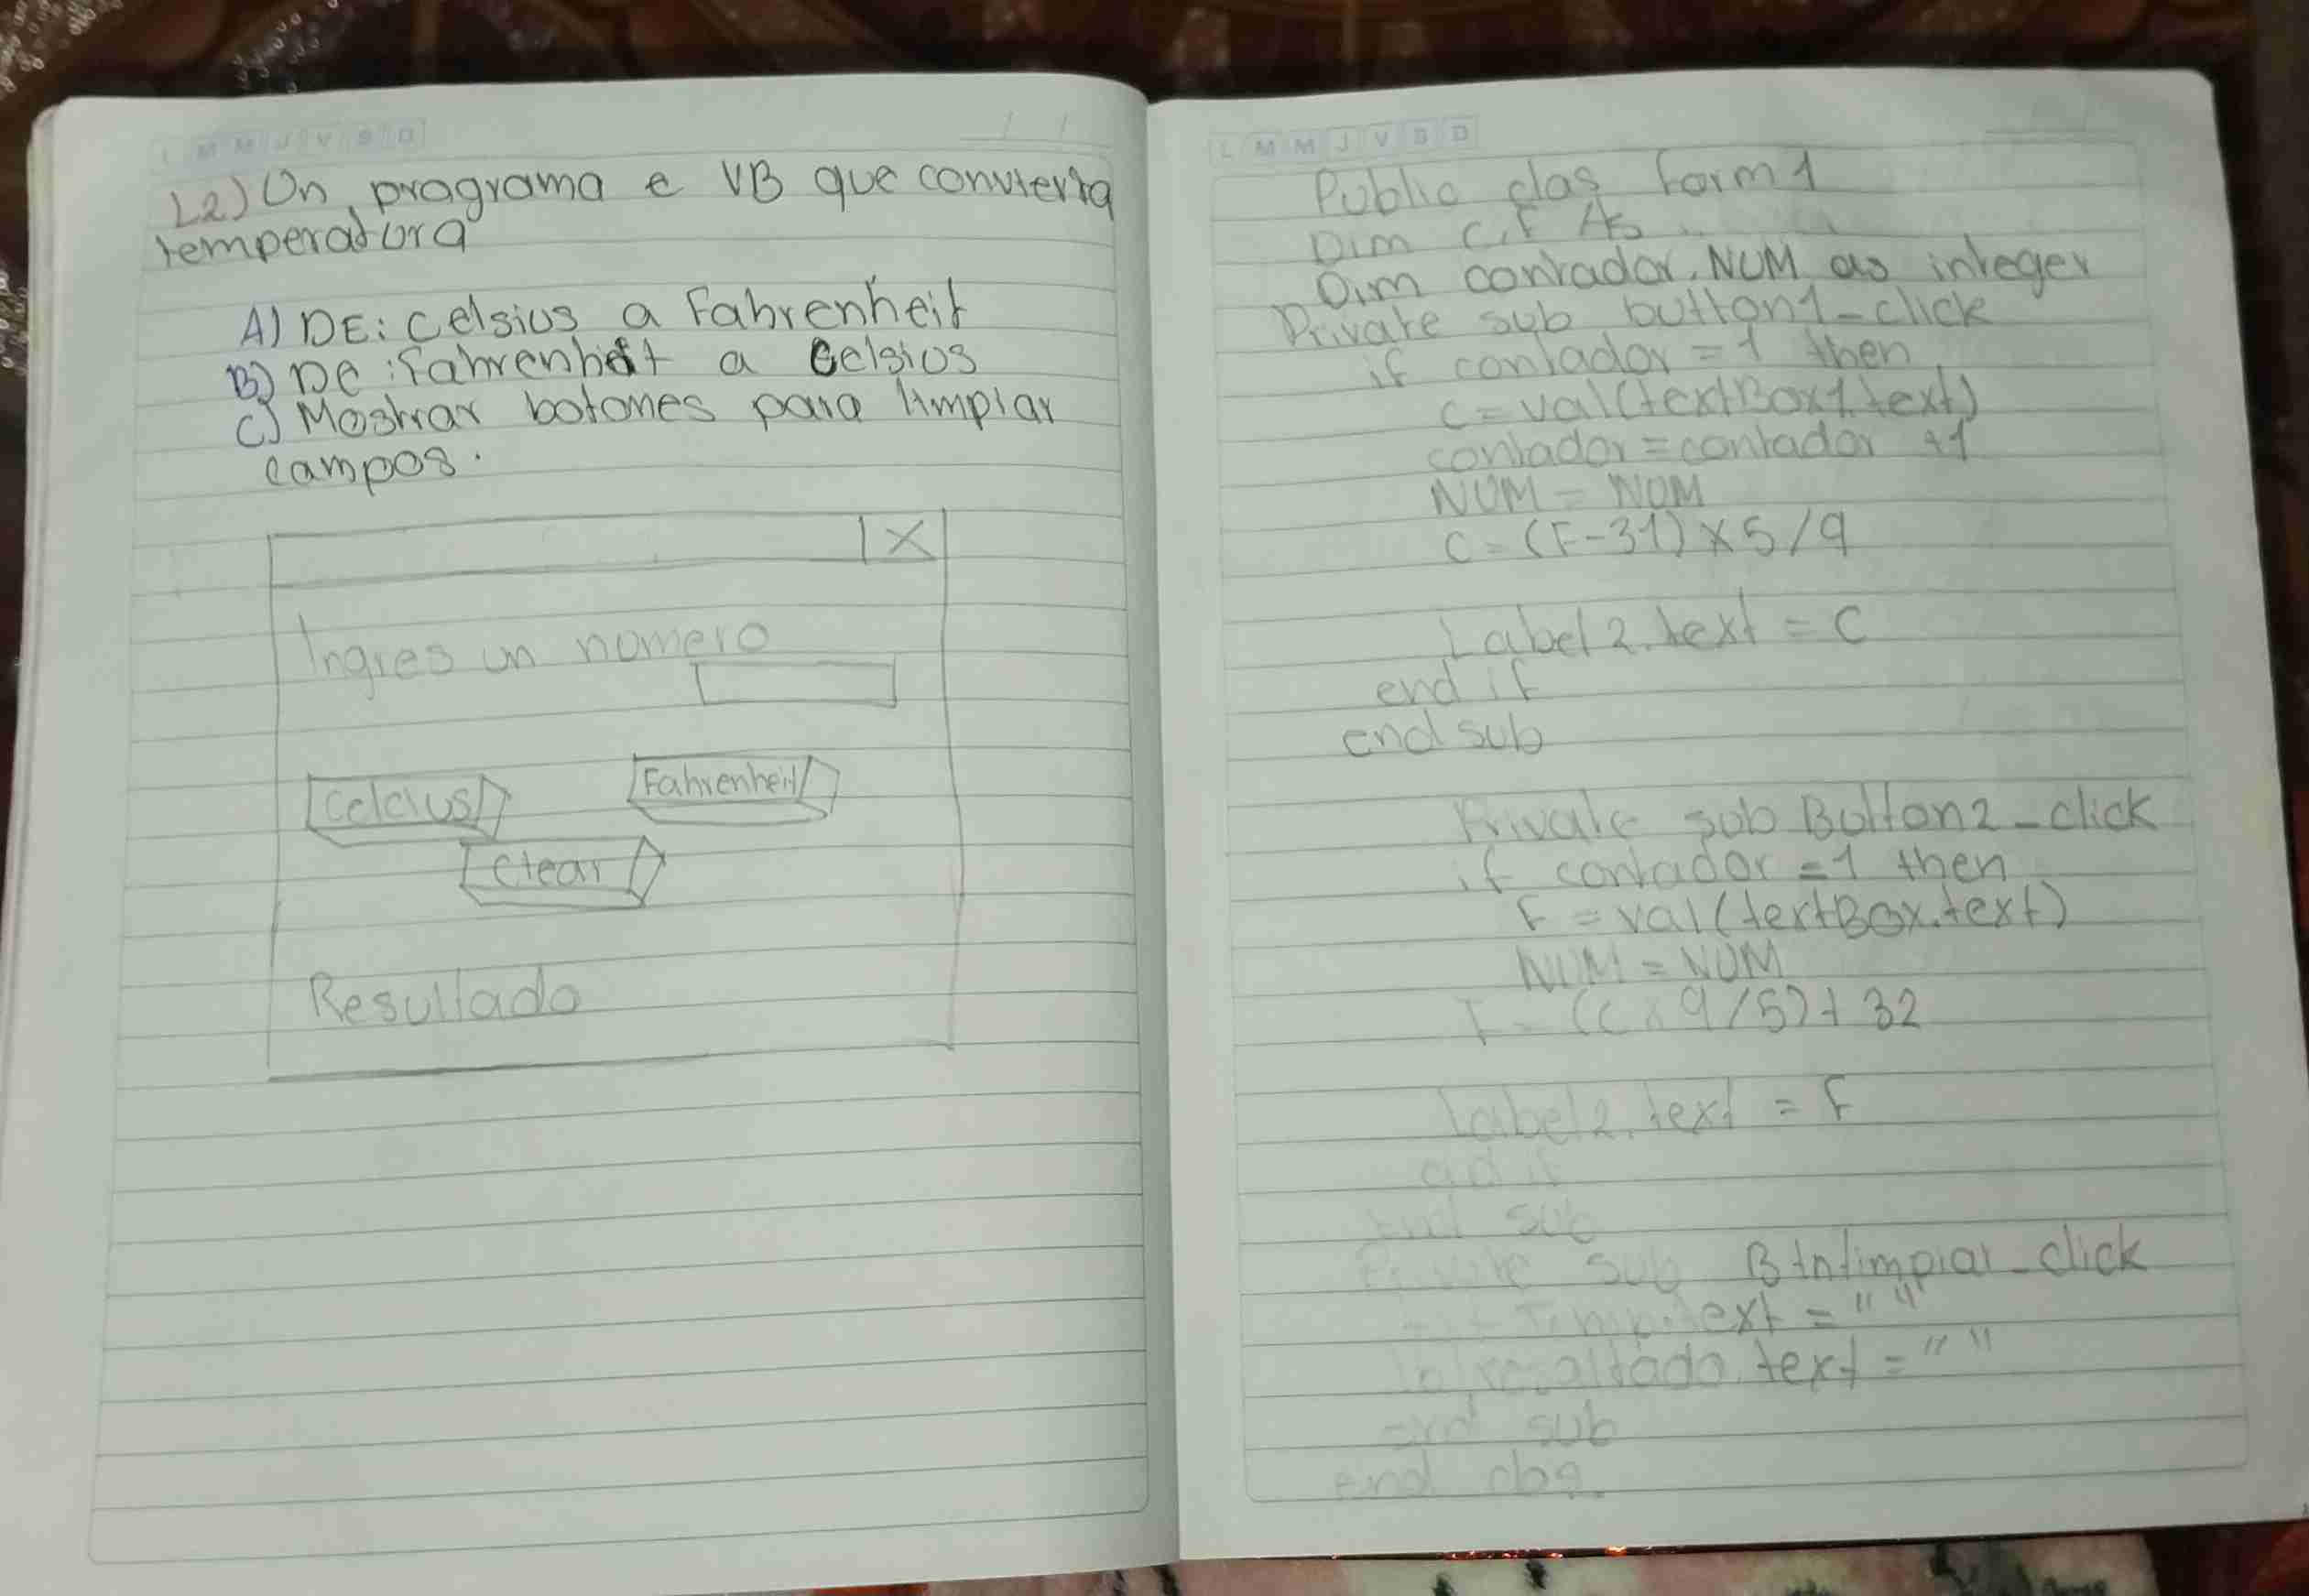 L M M J V S D
12) Un programa e VB que convierta
temperatura
A) DE: Celsius a Fahrenheit
B) DE: Fahrenheit a Celsius
C) Mostrar botones para limpiar
campos.
X
Ingres un numero
Celcius
Fahrenheit
Clear
Resultado
L M M J V S D
Public clas form1
Dim C,F As
Dim contador, NUM as integer
Private sub button1_click
if contador = 1 then
C = val(textBox1.text)
contador = contador +1
NUM = NUM
C = (F-31) x 5/9
Label2.text = C
end if
end sub
Private sub Button2_click
if contador = 1 then
F = val(textBox.text)
NUM = NUM
F = (C x 9/5) + 32
Label2.text = F
end if
end sub
Private sub Btnlimpiar_click
text = " "
text = " "
end sub
end clas.